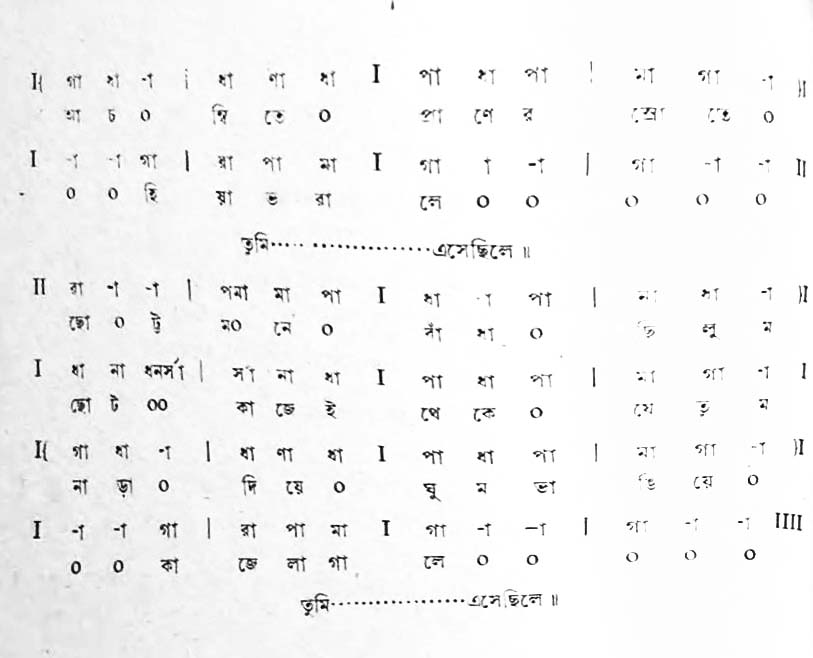 I{ গা ধা -া | ধা ণা ধা I পা ধা পা | মা গা -া }I
আ চ ০ ম্বি তে ০ প্রা ণে র স্রো তে ০
I -া -া গা | রা পা মা I গা া -া | গা -া -া II
০ ০ হি য়া ভ রা লে ০ ০ ০ ০ ০
তুমি·················এসেছিলে ॥
II রা -া -া | পমা মা পা I ধা -া পা | মা ধা -া }I
ছো ০ ট্ট ম০ নে ০ বাঁ ধা ০ ছি লু ম
I ধা না ধনর্সা | র্সা না ধা I পা ধা পা | মা গা -া I
ছো ট ০০ কা জে ই থে কে ০ যে তু ম
I{ গা ধা -া | ধা ণা ধা I পা ধা পা | মা গা -া }I
না ড়া ০ দি য়ে ০ ঘু ম ভা ঙি য়ে ০
I -া -া গা | রা পা মা I গা -া -া | গা -া -া IIII
০ ০ কা জে লা গা লে ০ ০ ০ ০ ০
তুমি·················এসেছিলে ॥